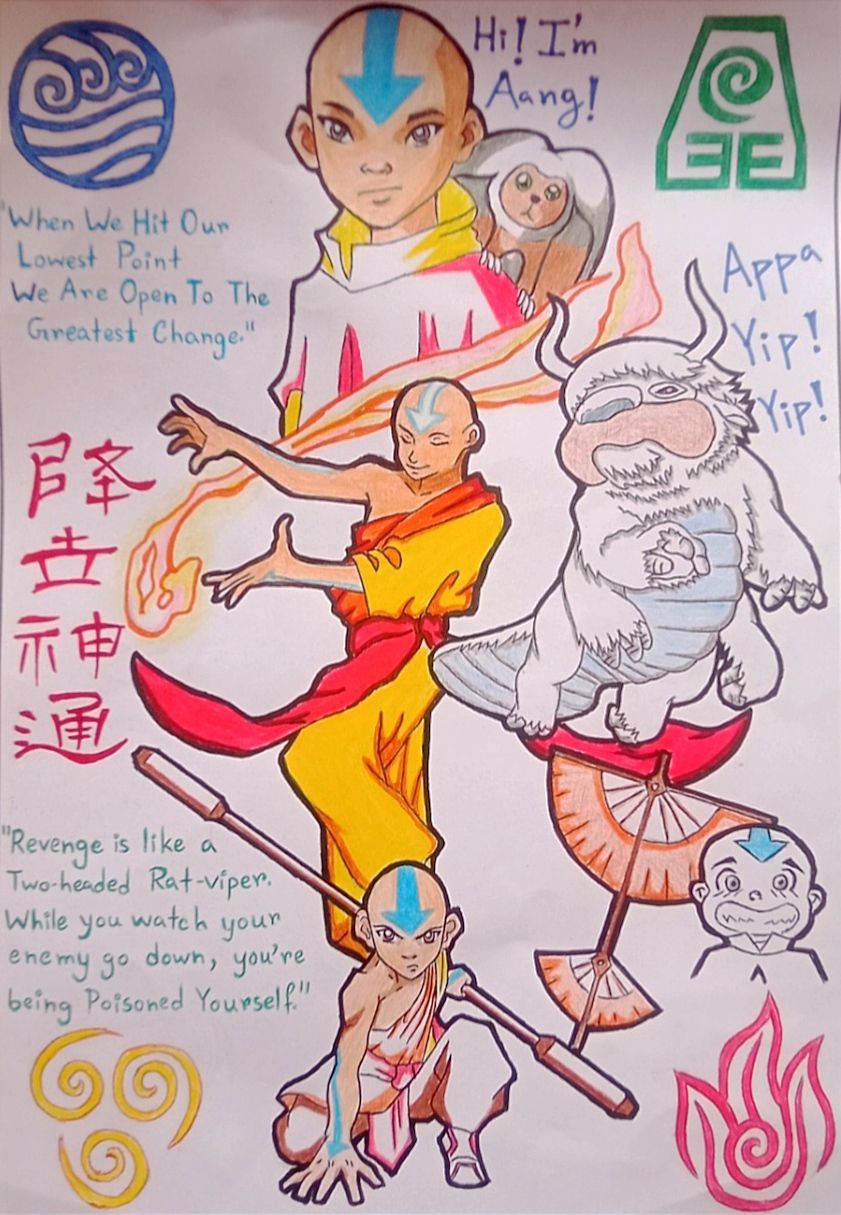 Hi! I'm
Aang!
"When We Hit Our
Lowest Point
We Are Open To The
Greatest Change."
Appa
Yip!
Yip!
降世神通
"Revenge is like a
Two-headed Rat-viper.
While you watch your
enemy go down, you're
being Poisoned Yourself."